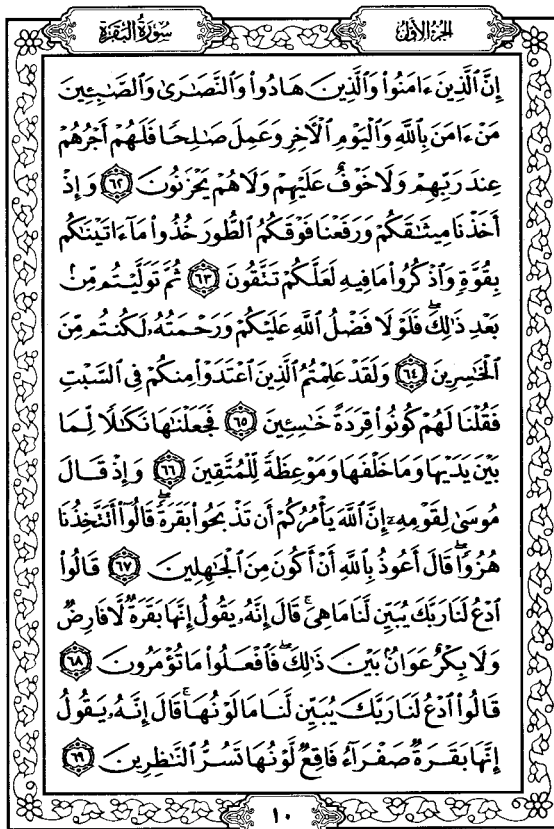 الجُزْءُ الأَوَّلُ
سُورَةُ البَقَرَةِ
إِنَّ ٱلَّذِينَ ءَامَنُوا۟ وَٱلَّذِينَ هَادُوا۟ وَٱلنَّصَـٰرَىٰ وَٱلصَّـٰبِـِٔينَ
مَنْ ءَامَنَ بِٱللَّهِ وَٱلْيَوْمِ ٱلْـَٔاخِرِ وَعَمِلَ صَـٰلِحًا فَلَهُمْ أَجْرُهُمْ
عِندَ رَبِّهِمْ وَلَا خَوْفٌ عَلَيْهِمْ وَلَا هُمْ يَحْزَنُونَ ٦٢ وَإِذْ
أَخَذْنَا مِيثَـٰقَكُمْ وَرَفَعْنَا فَوْقَكُمُ ٱلطُّورَ خُذُوا۟ مَآ ءَاتَيْنَـٰكُم
بِقُوَّةٍ وَٱذْكُرُوا۟ مَا فِيهِ لَعَلَّكُمْ تَتَّقُونَ ٦٣ ثُمَّ تَوَلَّيْتُم مِّنۢ
بَعْدِ ذَٰلِكَ ۖ فَلَوْلَا فَضْلُ ٱللَّهِ عَلَيْكُمْ وَرَحْمَتُهُۥ لَكُنتُم مِّنَ
ٱلْخَـٰسِرِينَ ٦٤ وَلَقَدْ عَلِمْتُمُ ٱلَّذِينَ ٱعْتَدَوْا۟ مِنكُمْ فِى ٱلسَّبْتِ
فَقُلْنَا لَهُمْ كُونُوا۟ قِرَدَةً خَـٰسِـِٔينَ ٦٥ فَجَعَلْنَـٰهَا نَكَـٰلًا لِّمَا
بَيْنَ يَدَيْهَا وَمَا خَلْفَهَا وَمَوْعِظَةً لِّلْمُتَّقِينَ ٦٦ وَإِذْ قَالَ
مُوسَىٰ لِقَوْمِهِۦٓ إِنَّ ٱللَّهَ يَأْمُرُكُمْ أَن تَذْبَحُوا۟ بَقَرَةً ۖ قَالُوٓا۟ أَتَتَّخِذُنَا
هُزُوًا ۖ قَالَ أَعُوذُ بِٱللَّهِ أَنْ أَكُونَ مِنَ ٱلْجَـٰهِلِينَ ٦٧ قَالُوا۟
ٱدْعُ لَنَا رَبَّكَ يُبَيِّن لَّنَا مَا هِىَ ۚ قَالَ إِنَّهُۥ يَقُولُ إِنَّهَا بَقَرَةٌ لَّا فَارِضٌ
وَلَا بِكْرٌ عَوَانٌۢ بَيْنَ ذَٰلِكَ ۖ فَٱفْعَلُوا۟ مَا تُؤْمَرُونَ ٦٨
قَالُوا۟ ٱدْعُ لَنَا رَبَّكَ يُبَيِّن لَّنَا مَا لَوْنُهَا ۚ قَالَ إِنَّهُۥ يَقُولُ
إِنَّهَا بَقَرَةٌ صَفْرَآءُ فَاقِعٌ لَّوْنُهَا تَسُرُّ ٱلنَّـٰظِرِينَ ٦٩
١٠